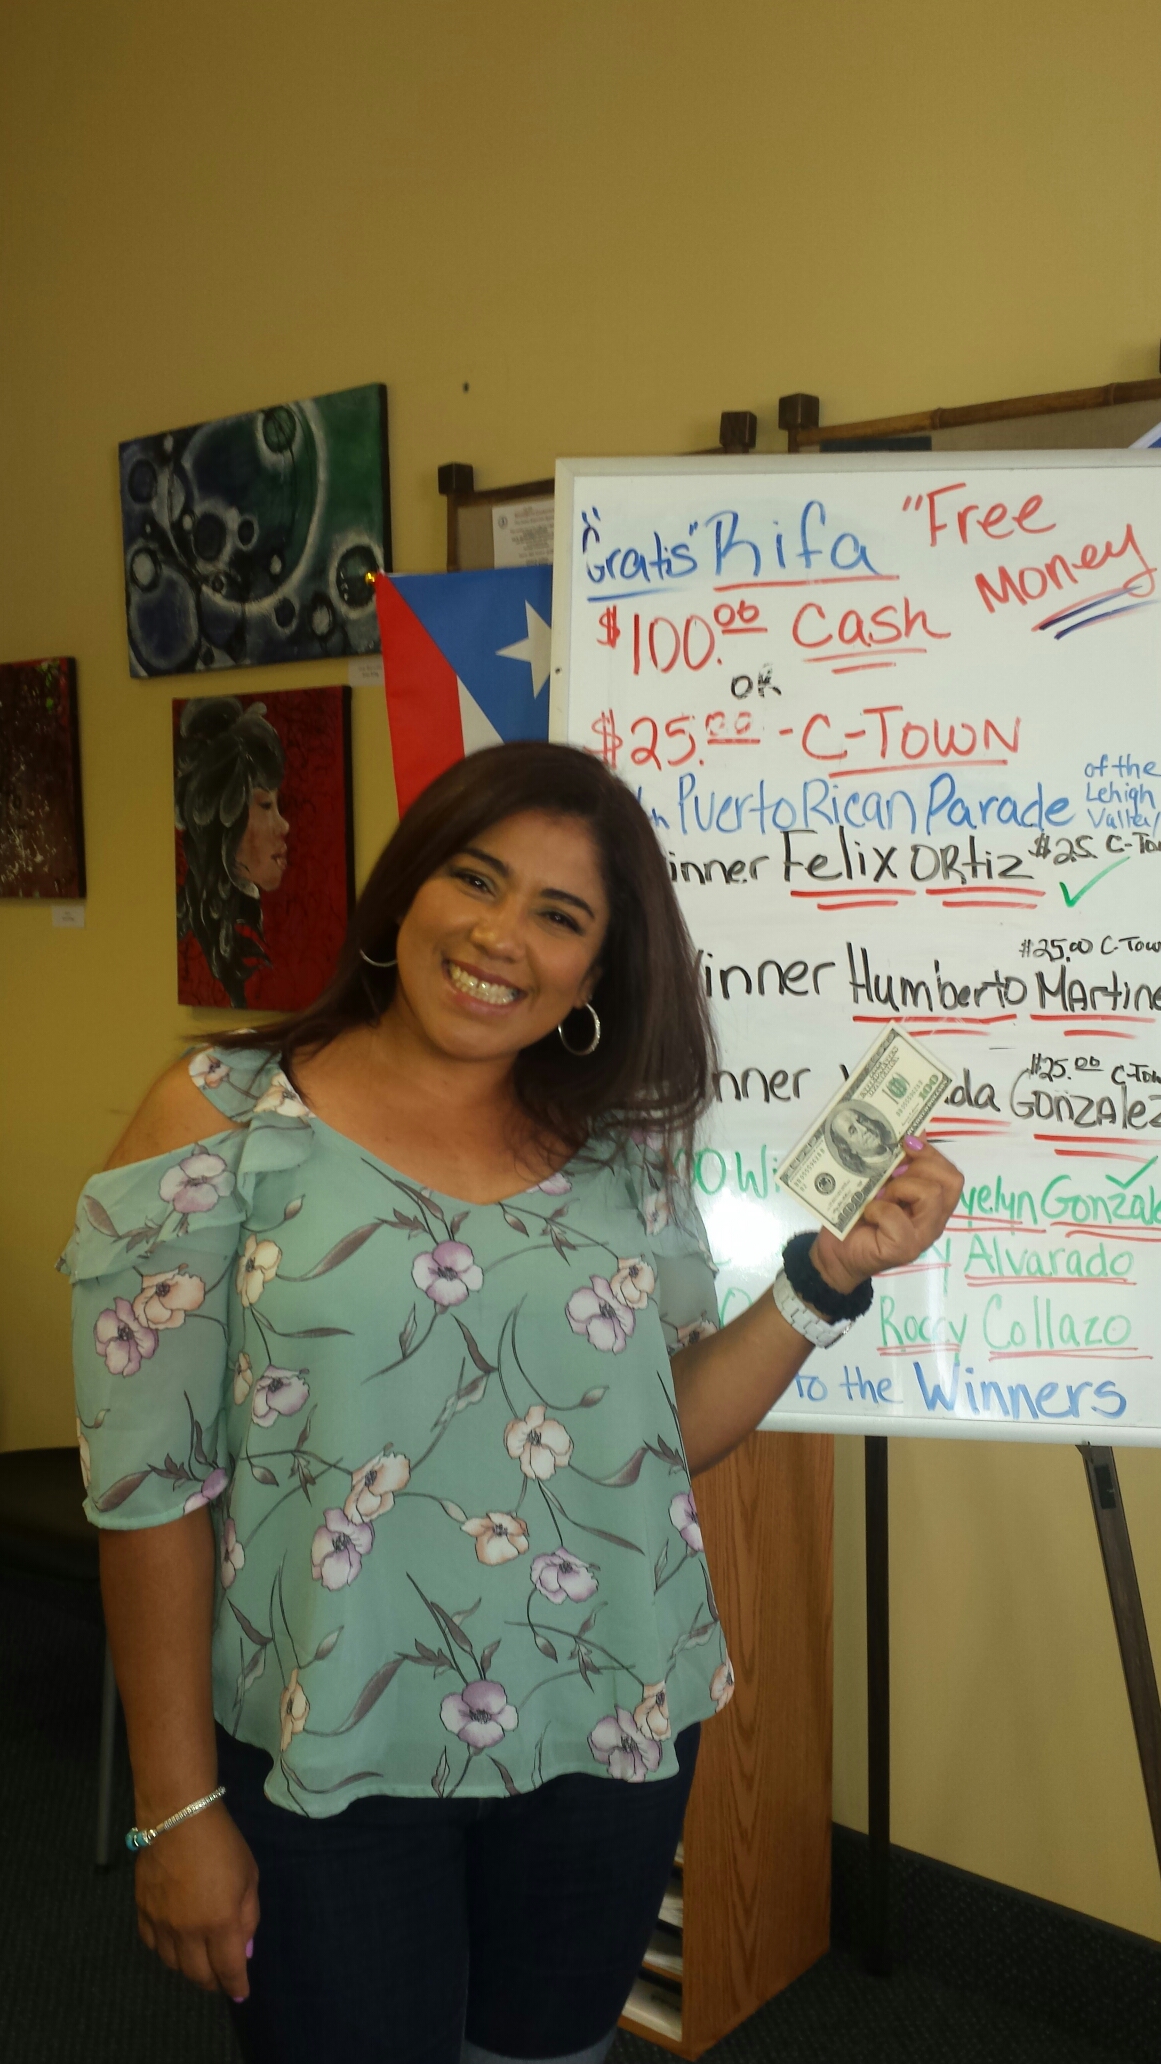 "Gratis" Rifa "Free Money
$100.00 Cash
OR
$25.00 - C-TOWN
Puerto Rican Parade of the Lehigh Valley
Felix ORtiz $25. C-Tow
Humberto MArtine
$25.00 C-Tow
GonzAlez $25.00 C-Tow
Gonzale
Alvarado
Rocky Collazo
to the Winners
100